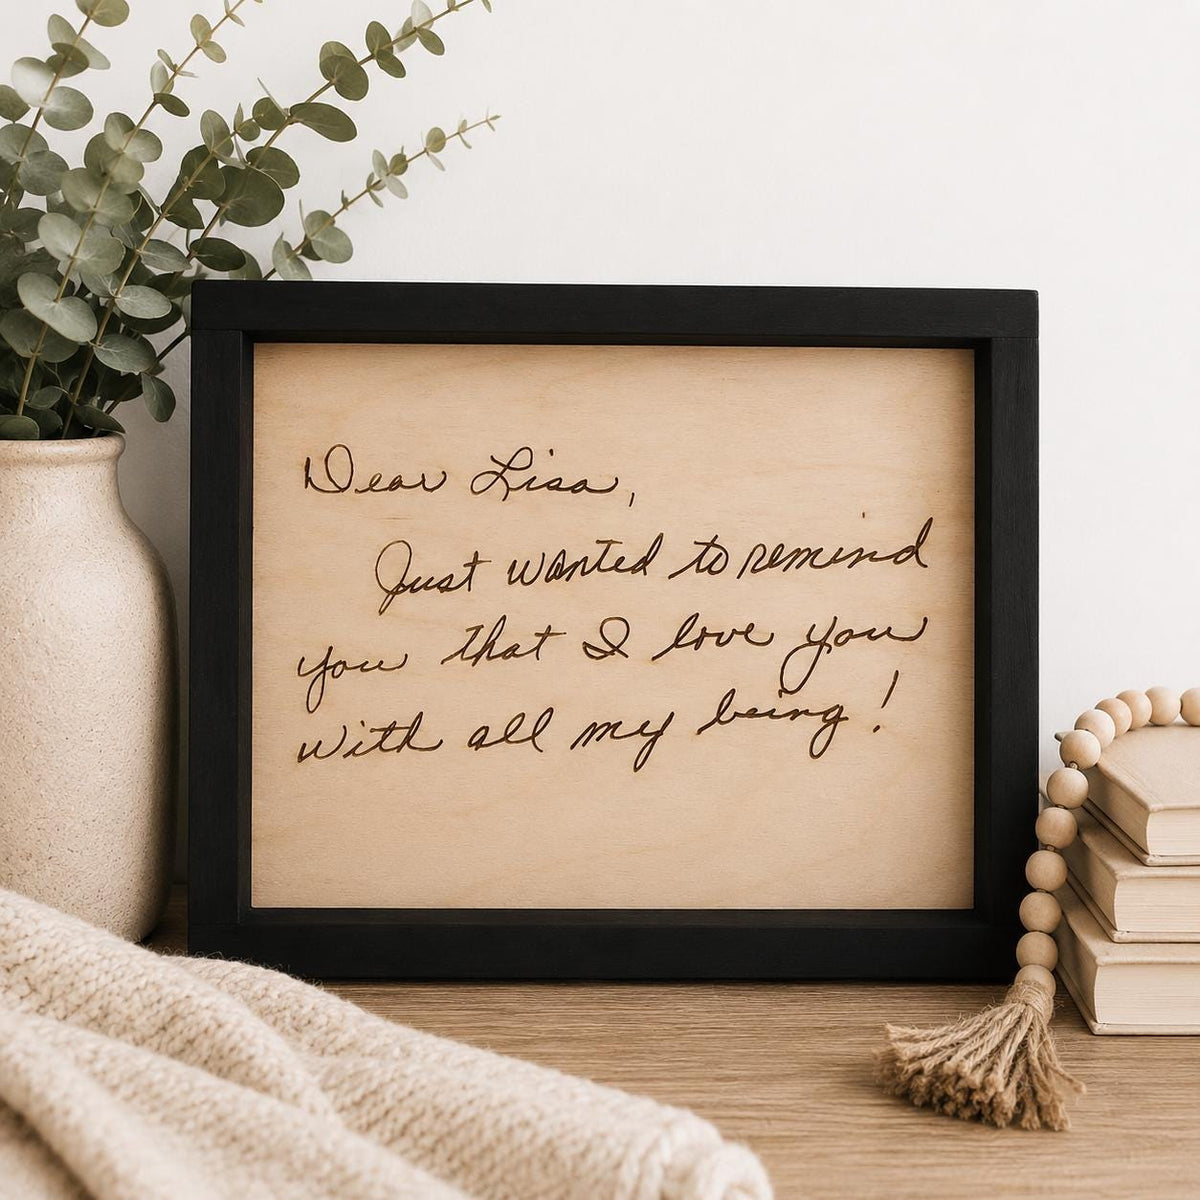 Dear Lisa,
Just wanted to remind
you that I love you
with all my being!